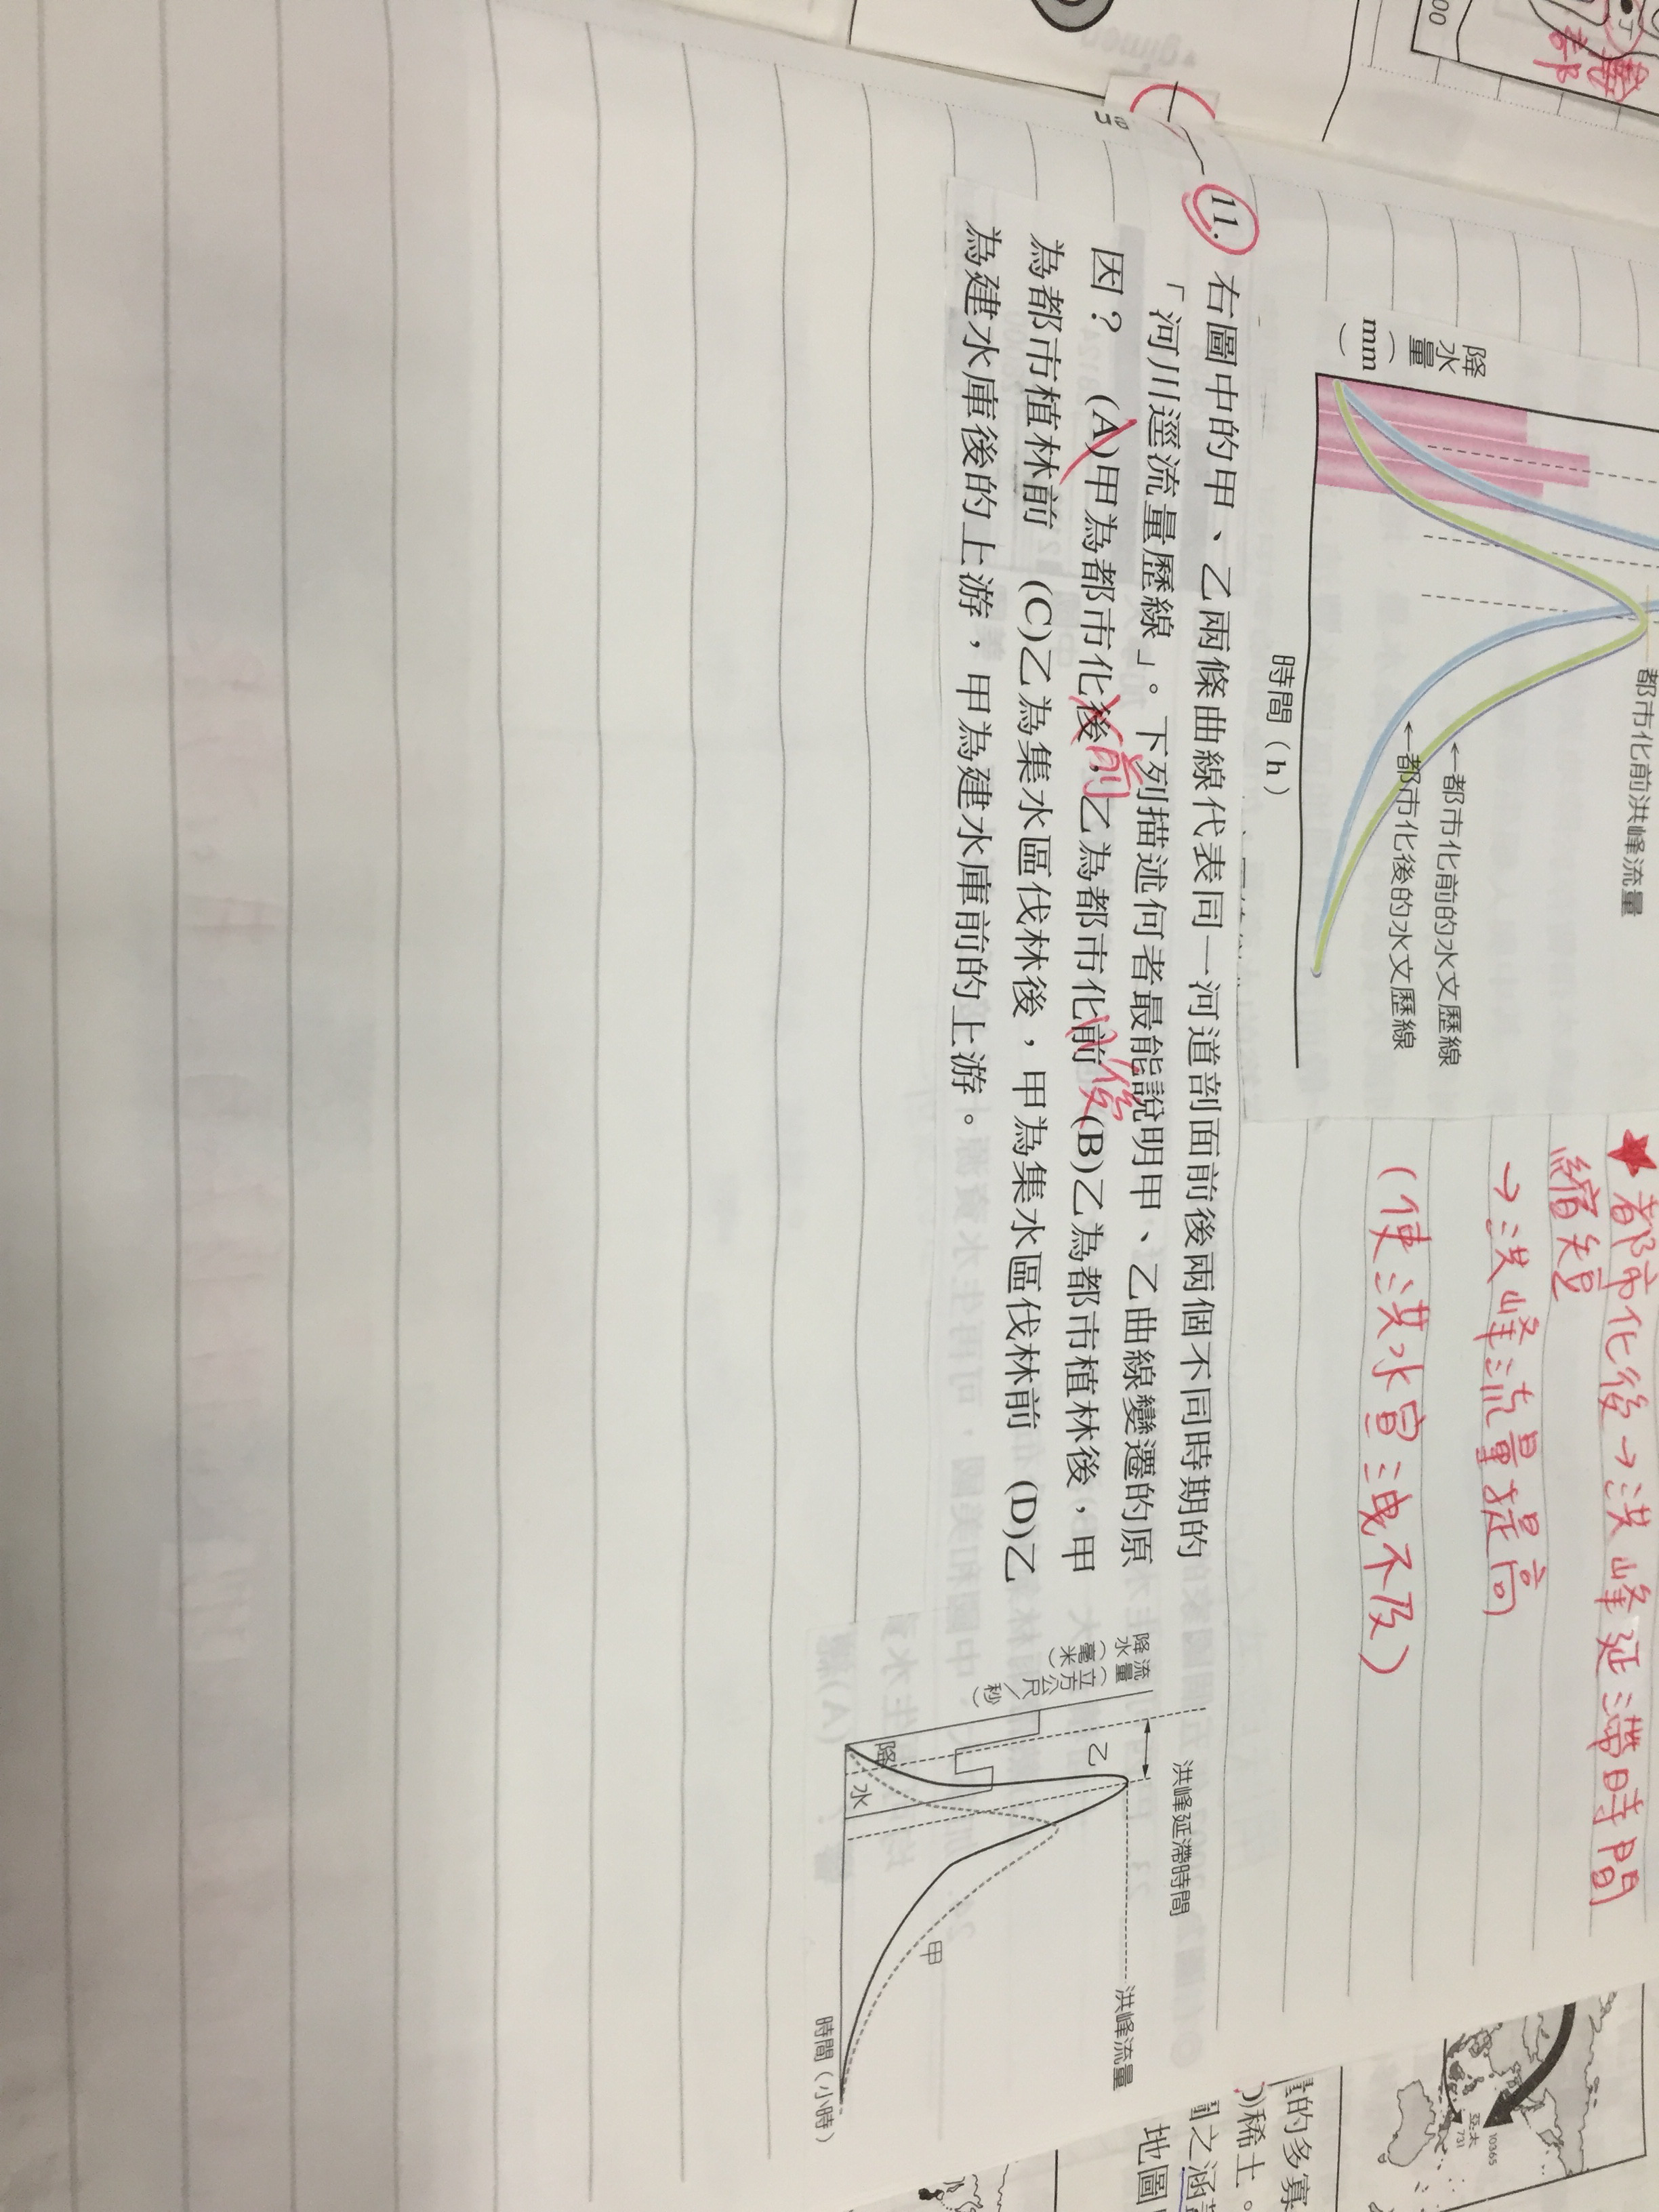 降水量(mm)
都市化前洪峰流量
←都市化前的水文歷線
←都市化後的水文歷線
時間(h)
★都市化後→洪峰延滯時間
縮短
→洪峰流量提高
(使洪水宣洩不及)
11. 右圖中的甲、乙兩條曲線代表同一河道剖面前後兩個不同時期的
「河川逕流量歷線」。下列描述何者最能說明甲、乙曲線變遷的原
因? (A)甲為都市化後前,乙為都市化前後 (B)乙為都市植林後,甲
為都市植林前 (C)乙為集水區伐林後,甲為集水區伐林前 (D)乙
為建水庫後的上游,甲為建水庫前的上游。
洪峰延滯時間
洪峰流量
流量(立方公尺/秒)
降水(毫米)
乙
甲
降水
時間(小時)
的多寡
)稀土。
之涵
地圖
亞太
731
10365
00